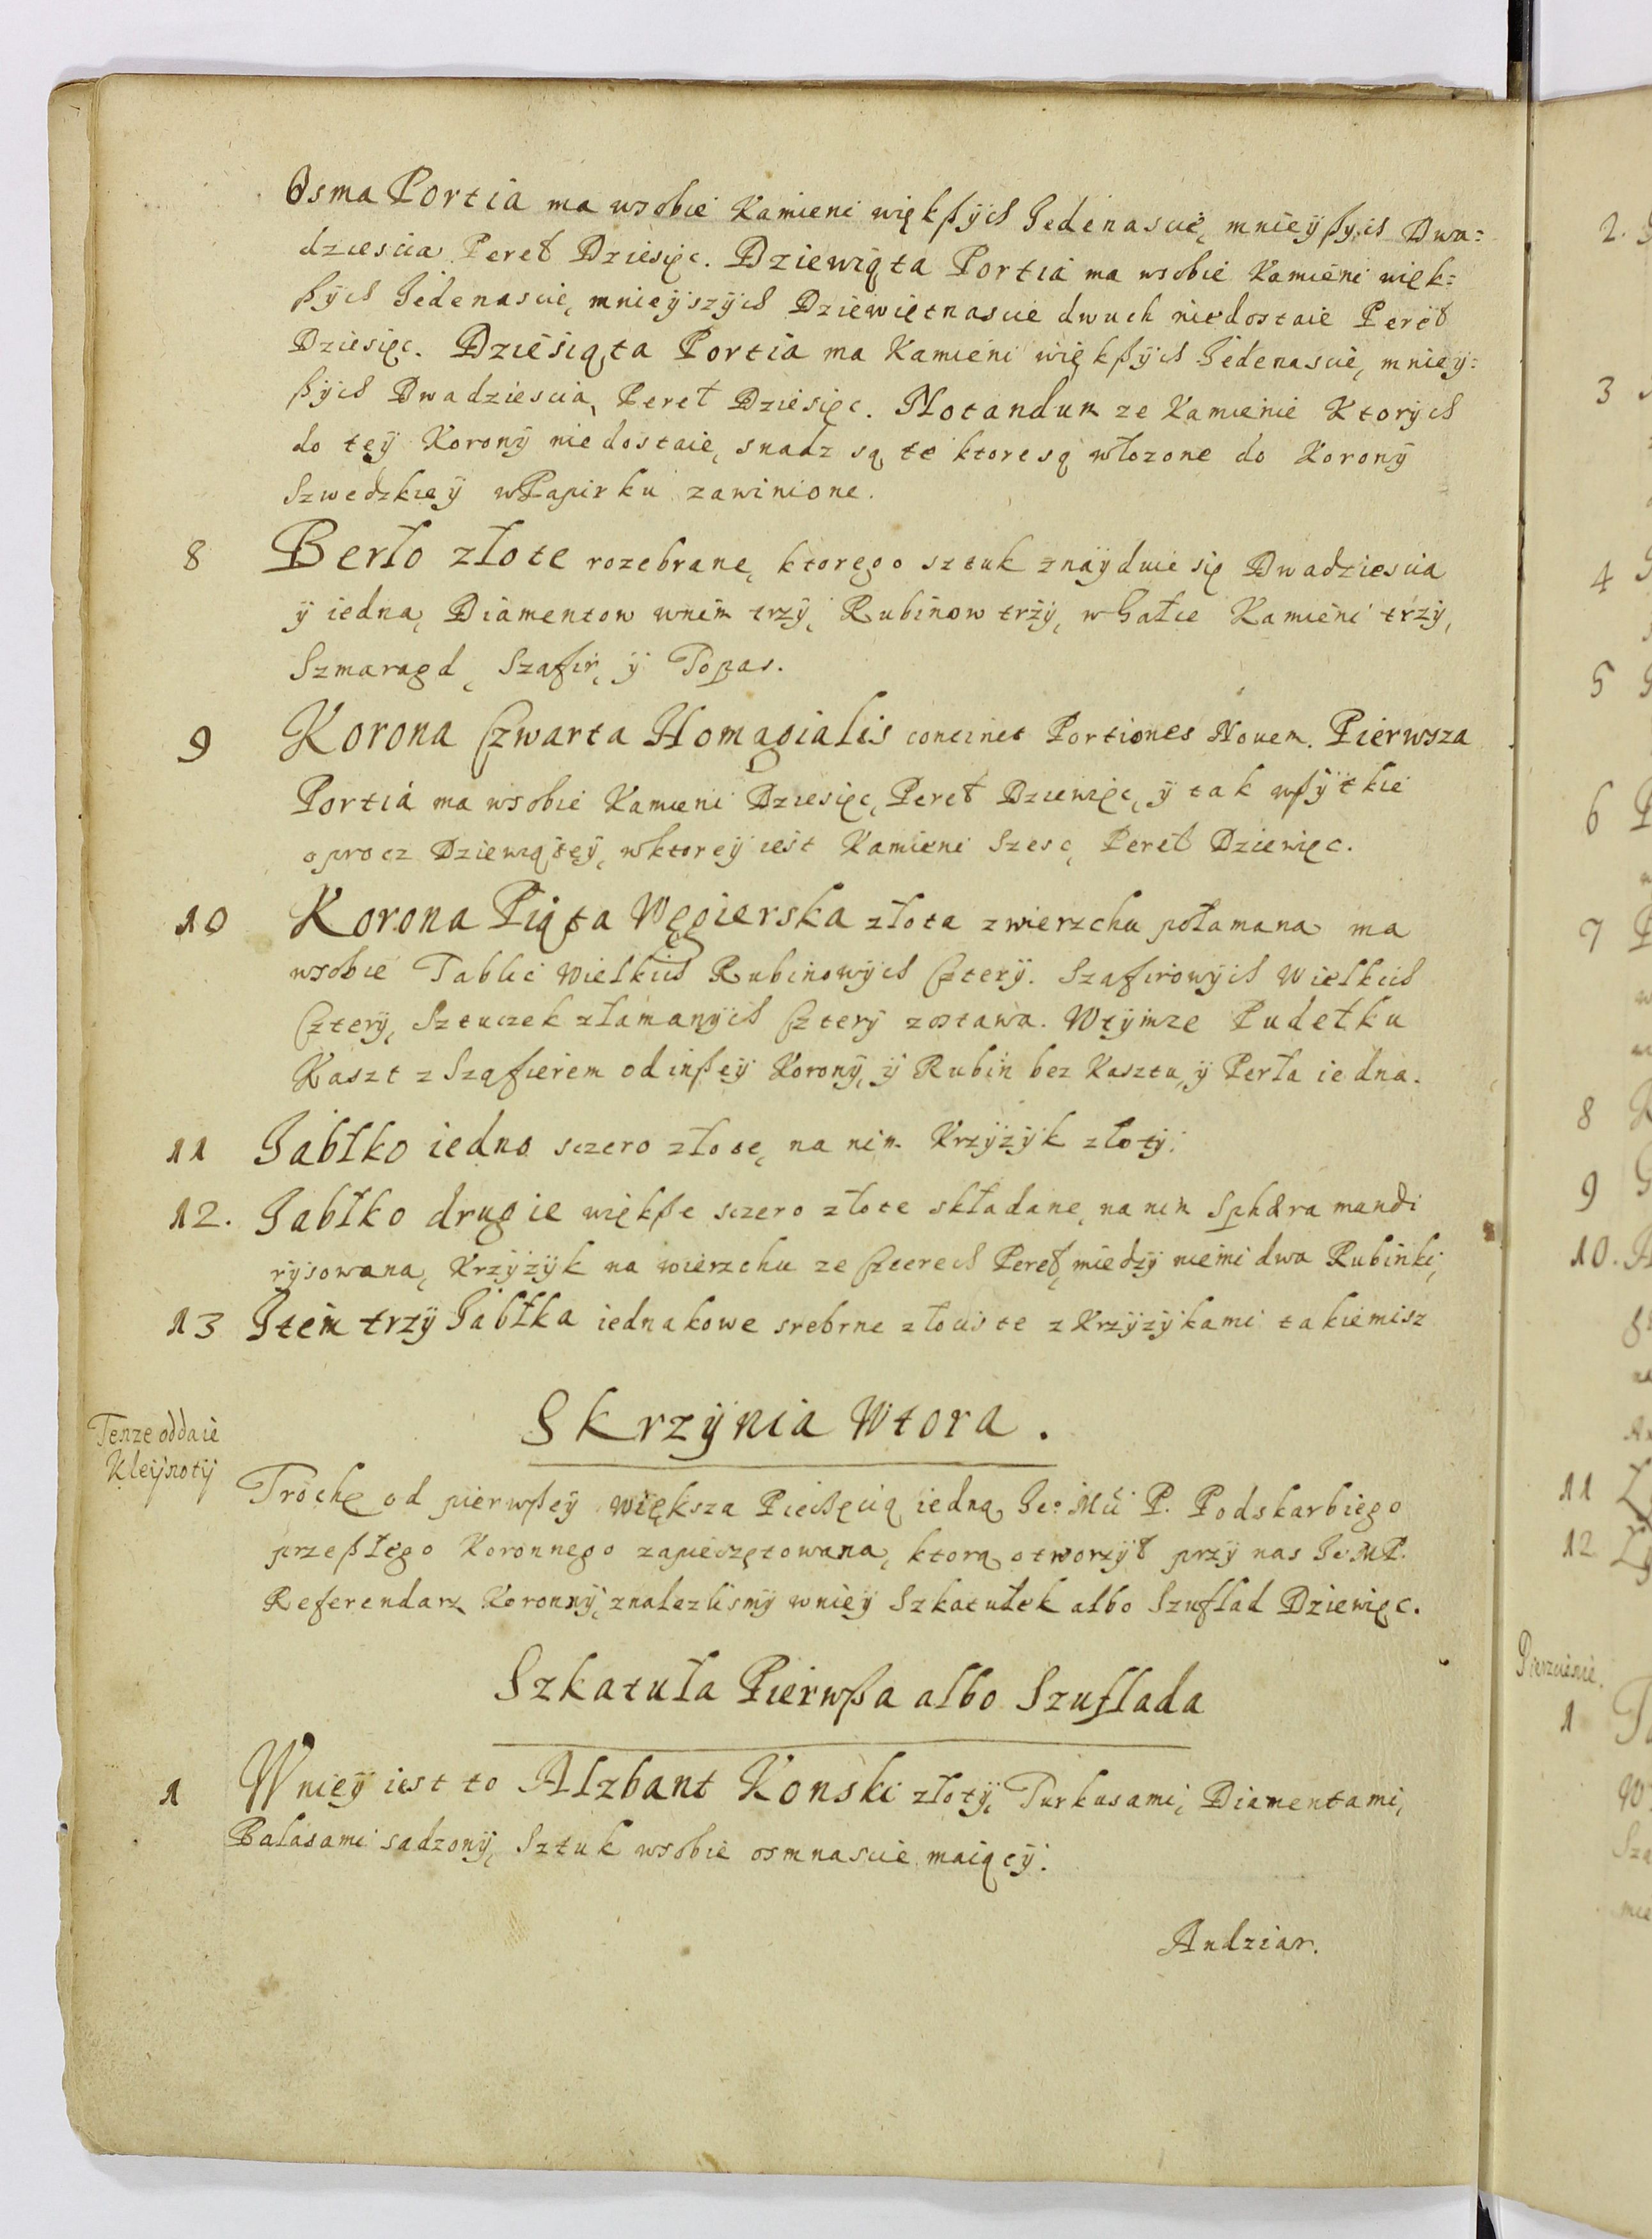 Osma Portia ma wsobie Kamieni więkßych Jedenascie, mnieyßych Dwa=
dziescia Pereł Dziesięc. Dziewiąta Portia ma wsobie Kamieni więk=
ßÿch Jedenascie, mnieÿszÿch Dziewiętnascie dwuch niedostaie Pereł
Dziesięc. Dziesiąta Portia ma Kamieni więkßÿch Jedenascie, mnieÿ=
ßÿch Dwadziescia, Pereł Dziesięc. Notandum ze Kamienie Ktorÿch
do teÿ Koronÿ niedostaie, snadz są te ktore są włozone do Koronÿ
Szwedzkieÿ wPapirku zawinione.
8 Berło złote rozebrane, ktorego sztuk znaÿduie się Dwadziescia
ÿ iedna, Diamentow wnim trzÿ, Rubinow trzÿ, w Gałce Kamieni trzÿ,
Szmaragd, Szafir, ÿ Topas.
9 Korona Czwarta Homagialis continet Portiones Nouem. Pierwsza
Portia ma wsobie Kamieni Dziesięc, Pereł Dziewięc, ÿ tak wßÿtkie
oprocz Dziewiąteÿ, wktoreÿ iest Kamieni Szesc, Pereł Dziewięc.
10 Korona Piąta Węgierska złota zwierzchu połamana ma
wsobie Tablic Wielkich Rubinowÿch Czterÿ. Szafirowÿch Wielkich
Czterÿ, Sztuczek złamanÿch Czterÿ zostawa. Wtÿmze Pudełku
Kaszt z Szafierem od inßeÿ Koronÿ, ÿ Rubin bez Kasztu, ÿ Perła iedna.
11 Jabłko iedno sczero złote, na nim Krzÿzÿk złotÿ.
12. Jabłko drugie więkße sczero złote składane, na nim Sphæra mundi
rÿsowana, Krzÿzÿk na wierzchu ze Czterech Pereł, miedzÿ niemi dwa Rubinki,
13 Item trzÿ Jabłka iednakowe srebrne złociste z Krzÿzÿkami takiemisz
Skrzÿnia Wtora.
Tenze oddaie
Kleÿnotÿ
Trochę od pierwßeÿ większa Pieczęcią iedną Je° Mci P. Podskarbiego
przeßłego Koronnego zapieczętowana, ktorą otworzÿł przÿ nas Je: M P.
Referendarz Koronnÿ, znalezlismÿ wnieÿ Szkatułek albo Szuflad Dziewięc.
Szkatuła Pierwßa albo Szuflada
1 Wnieÿ iest to Alzbant Konski złotÿ, Turkusami, Diamentami,
Balasami sadzonÿ, Sztuk wsobie osmnascie maiącÿ.
Andziar.
2.
3
4
5
6
7
8
9
10.
11
12
Pierzcienie.
1